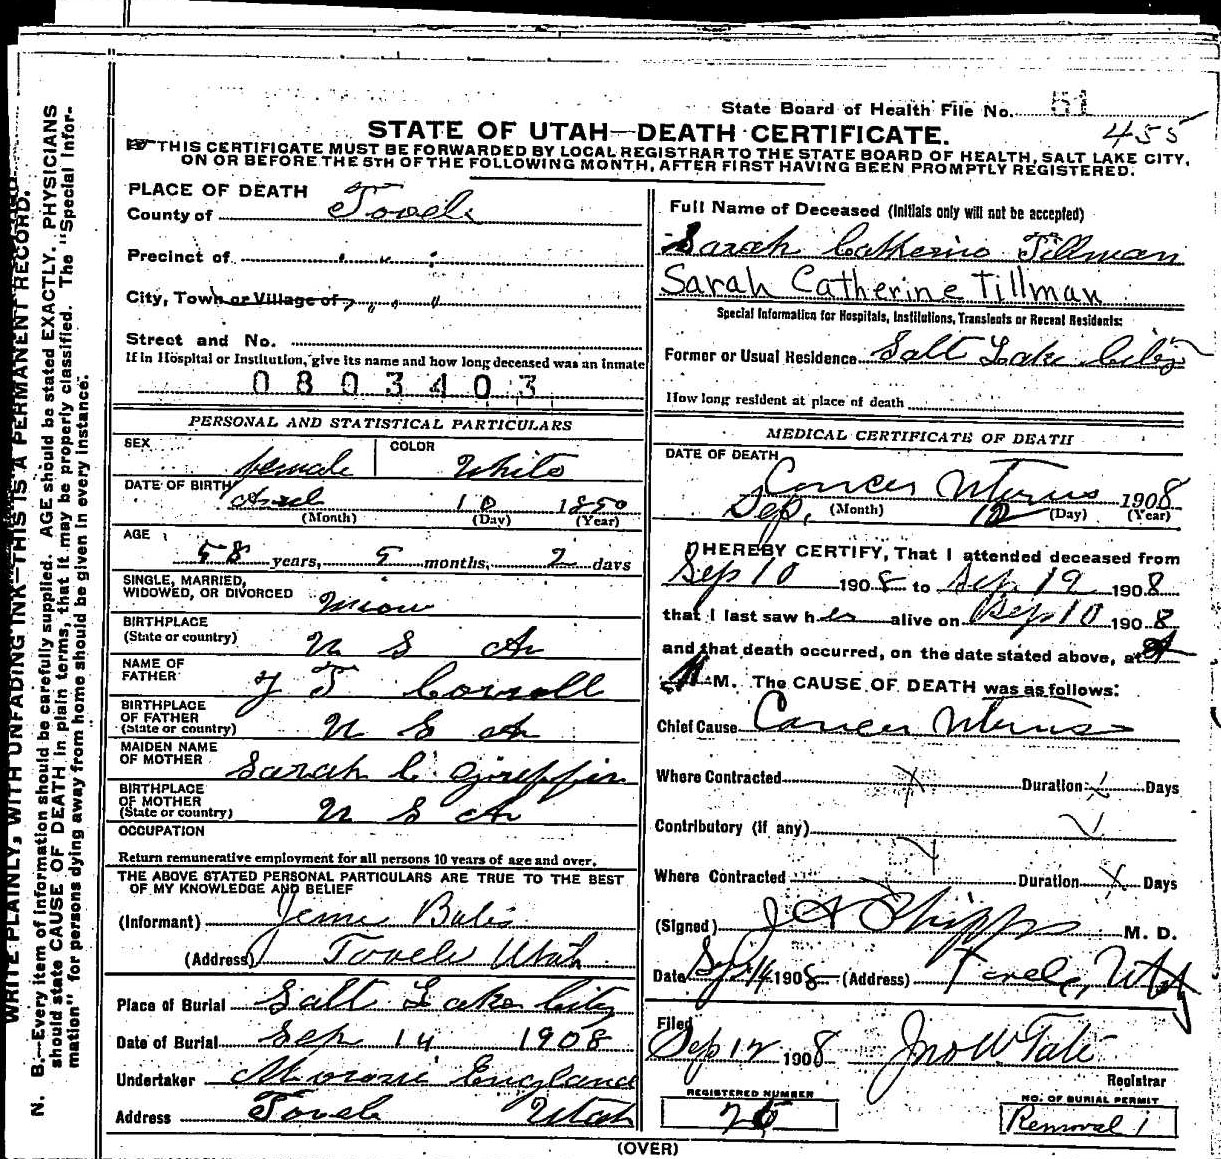 State Board of Health File No. 51
455
STATE OF UTAH—DEATH CERTIFICATE.
THIS CERTIFICATE MUST BE FORWARDED BY LOCAL REGISTRAR TO THE STATE BOARD OF HEALTH, SALT LAKE CITY,
ON OR BEFORE THE 5TH OF THE FOLLOWING MONTH, AFTER FIRST HAVING BEEN PROMPTLY REGISTERED.
WRITE PLAINLY, WITH UNFADING INK—THIS IS A PERMANENT RECORD.
N. B.—Every item of information should be carefully supplied. AGE should be stated EXACTLY. PHYSICIANS
should state CAUSE OF DEATH in plain terms, that it may be properly classified. The "Special Infor-
mation" for persons dying away from home should be given in every instance.
PLACE OF DEATH
County of Tooele
Precinct of " " "
City, Town or Village of " " "
Street and No.
If in Hospital or Institution, give its name and how long deceased was an inmate
0803403
PERSONAL AND STATISTICAL PARTICULARS
SEX female COLOR White
DATE OF BIRTH 10 1850
(Month) (Day) (Year)
AGE
58 years, 5 months, 2 days
SINGLE, MARRIED,
WIDOWED, OR DIVORCED
BIRTHPLACE
(State or country) U S A
NAME OF
FATHER
BIRTHPLACE
OF FATHER
(State or country) U S A
MAIDEN NAME
OF MOTHER Sarah C Griffin
BIRTHPLACE
OF MOTHER
(State or country) U S A
OCCUPATION
Return remunerative employment for all persons 10 years of age and over.
THE ABOVE STATED PERSONAL PARTICULARS ARE TRUE TO THE BEST
OF MY KNOWLEDGE AND BELIEF
(Informant)
(Address) Tooele Utah
Place of Burial Salt Lake City
Date of Burial Sep 14 1908
Undertaker England
Address Tooele Utah
Full Name of Deceased (Initials only will not be accepted)
Sarah Catherine Tillman
Sarah Catherine Tillman
Special Information for Hospitals, Institutions, Transients or Recent Residents:
Former or Usual Residence Salt Lake City
How long resident at place of death
MEDICAL CERTIFICATE OF DEATH
DATE OF DEATH
Cancer Uterus
Sep. 12 1908
(Month) (Day) (Year)
I HEREBY CERTIFY, That I attended deceased from
Sep 10 1908 to Sep 12 1908
that I last saw her alive on Sep 10 1908
and that death occurred, on the date stated above, at
M. The CAUSE OF DEATH was as follows:
Chief Cause Cancer Uterus
Where Contracted x Duration x Days
Contributory (if any)
Where Contracted Duration x Days
(Signed) J A Phipps M. D.
Date Sep 14 1908 (Address) Tooele, Utah
Filed
Sep 12 1908 Jno W Tate
Registrar
REGISTERED NUMBER
NO. OF BURIAL PERMIT
Removal 1
(OVER)